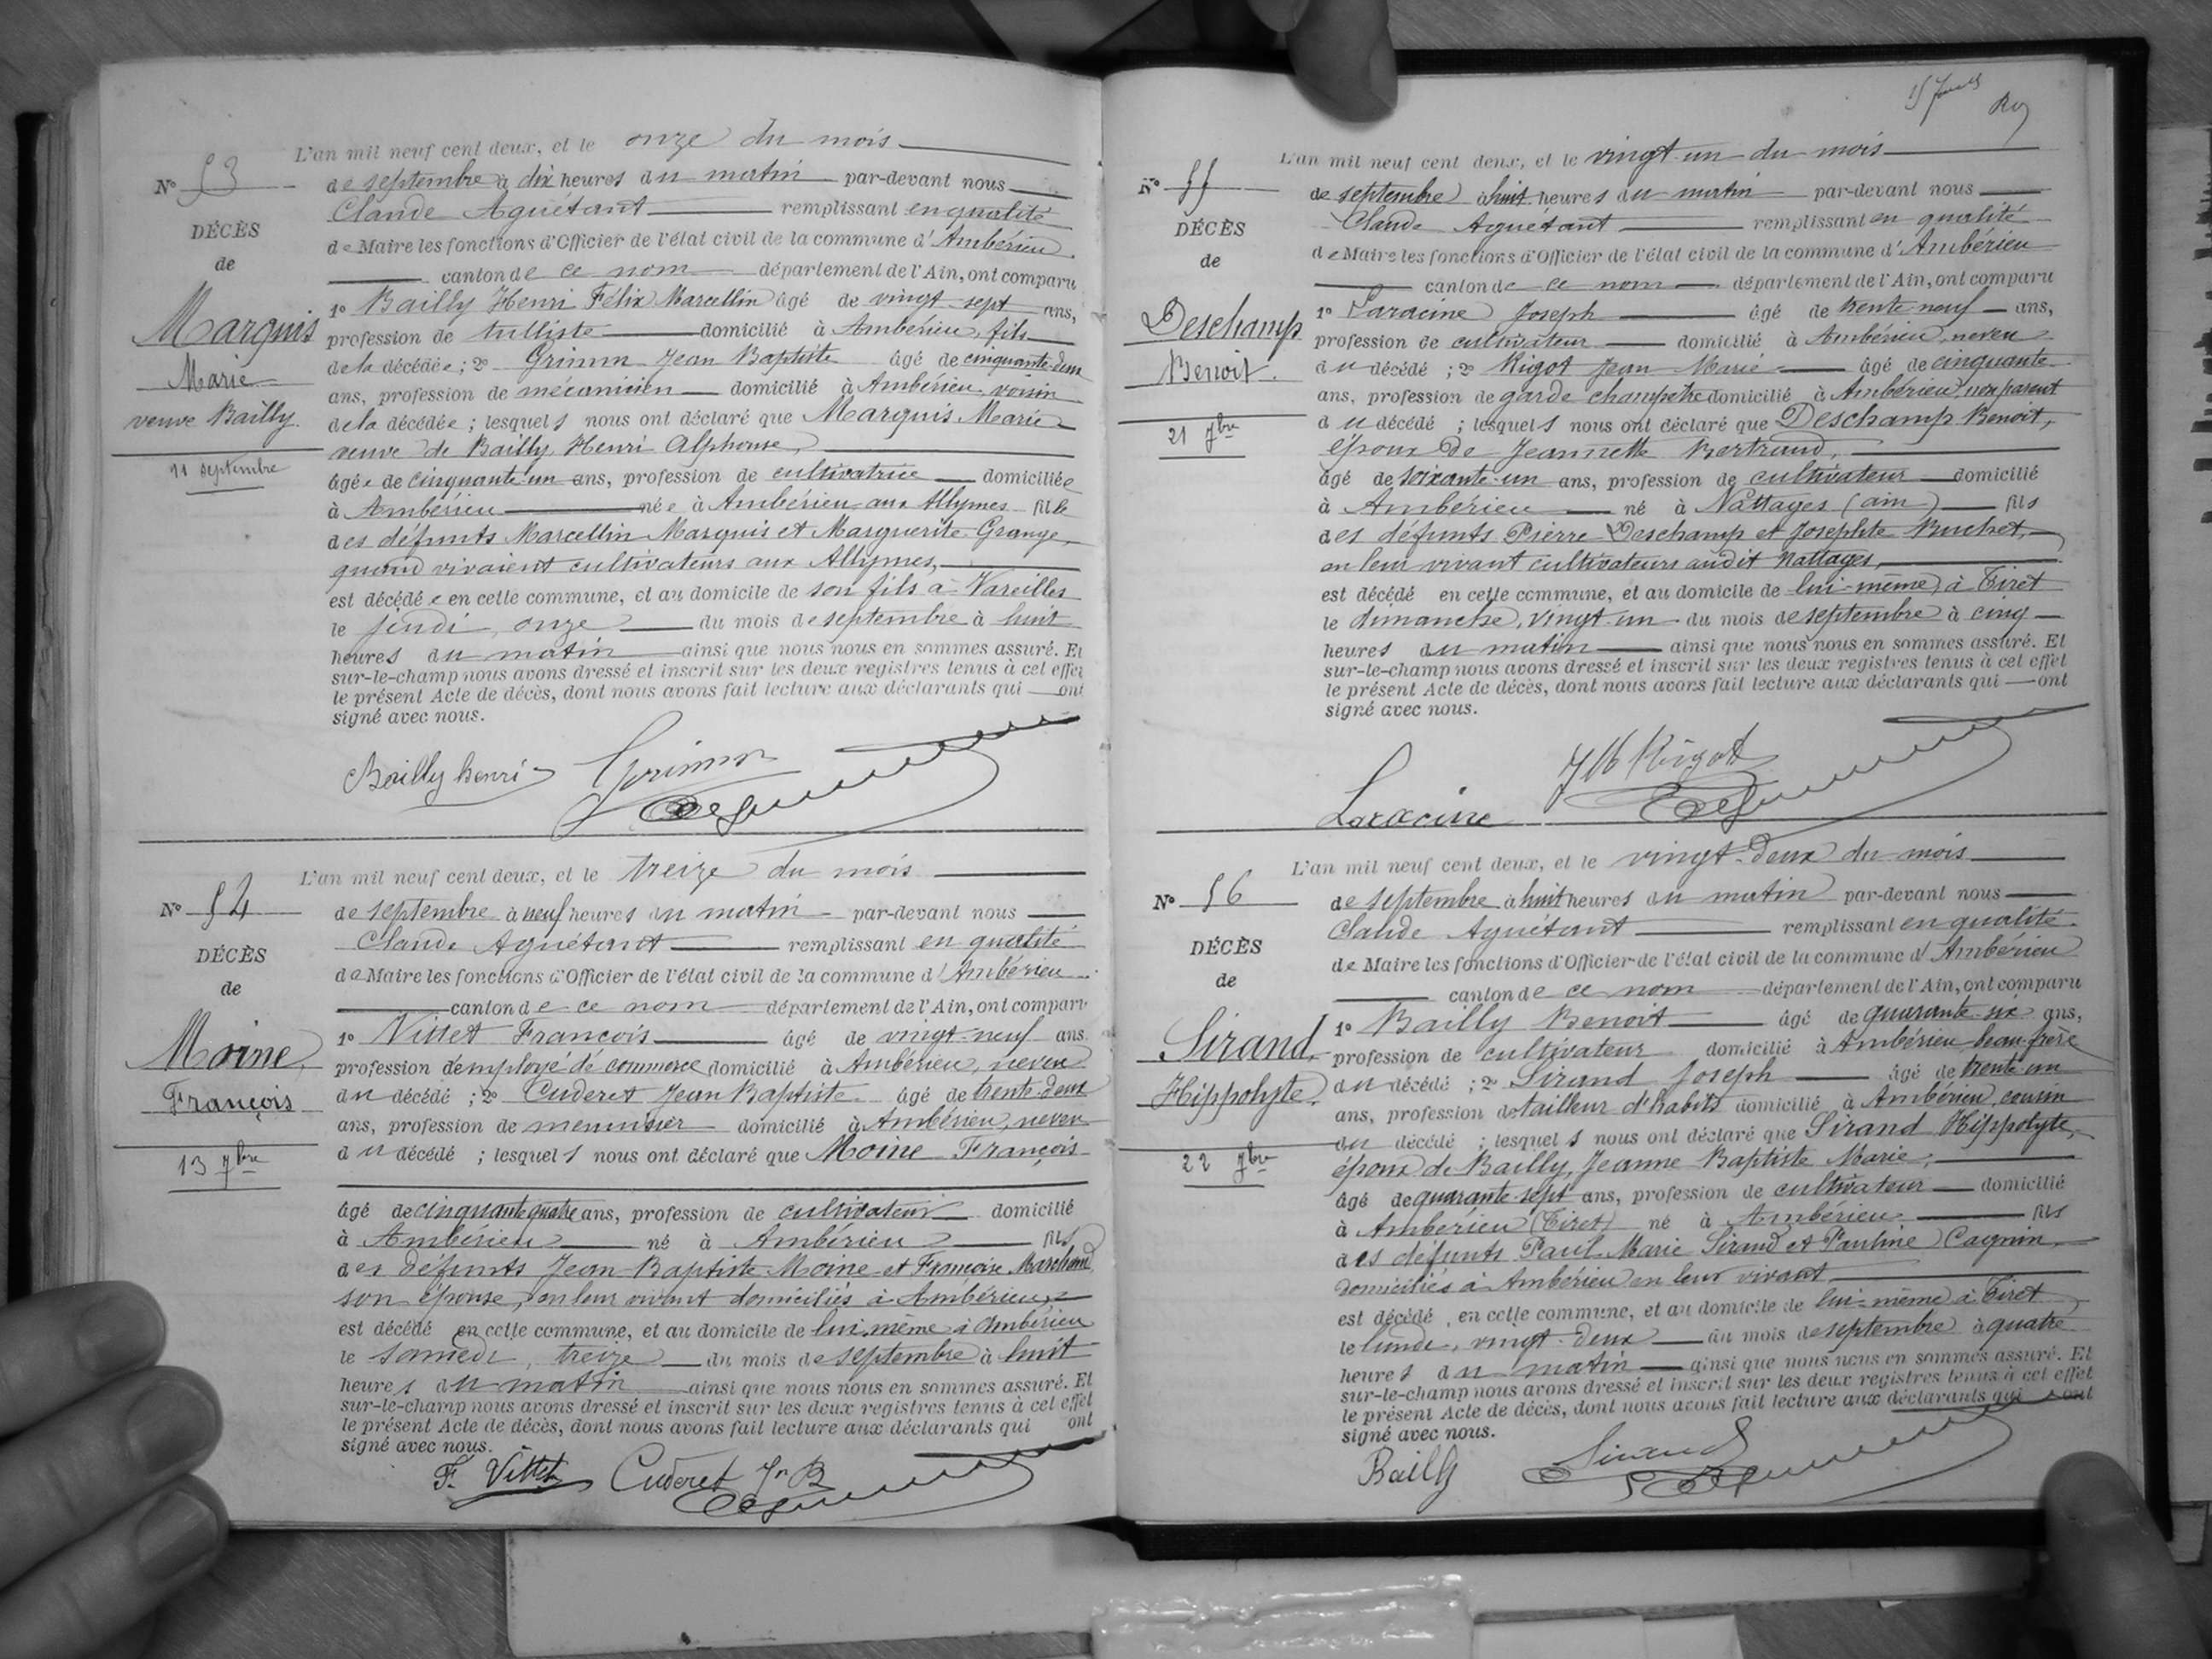 L'an mil neuf cent deux, et le onze du mois
N° 53
de septembre à dix heures du matin par-devant nous
Claude Aguétant remplissant en qualité
DÉCÈS
de Maire les fonctions d'Officier de l'état civil de la commune d'Ambérieu
de
canton de ce nom département de l'Ain, ont comparu
1° Bailly Henri Félix Marcellin âgé de vingt-sept ans,
Marquis
profession de tulliste domicilié à Ambérieu, fils
de la décédée ; 2° Grimm Jean Baptiste âgé de cinquante-deux
Marie
ans, profession de mécanicien domicilié à Ambérieu, voisin
veuve Bailly
de la décédée ; lesquels nous ont déclaré que Marquis Marie
veuve de Bailly Henri Alphonse,
11 septembre
âgée de cinquante-un ans, profession de cultivatrice domiciliée
à Ambérieu née à Ambérieu aux Allymes fille
des défunts Marcellin Marquis et Marguerite Grange,
quand vivaient cultivateurs aux Allymes,
est décédée en cette commune, et au domicile de son fils à Vareilles
le jeudi, onze du mois de septembre à huit
heures du matin ainsi que nous nous en sommes assuré. Et
sur-le-champ nous avons dressé et inscrit sur les deux registres tenus à cet effet
le présent Acte de décès, dont nous avons fait lecture aux déclarants qui ont
signé avec nous.
Bailly henri Grimm
L'an mil neuf cent deux, et le treize du mois
N° 54
de septembre à neuf heures du matin par-devant nous
Claude Aguétant remplissant en qualité
DÉCÈS
de Maire les fonctions d'Officier de l'état civil de la commune d'Ambérieu
de
canton de ce nom département de l'Ain, ont comparu
1° Vittet François âgé de vingt-neuf ans
Moine
profession d'employé de commerce domicilié à Ambérieu, neveu
François
du décédé ; 2° Cuderet Jean Baptiste âgé de trente-deux
ans, profession de menuisier domicilié à Ambérieu, neveu
13 7bre
du décédé ; lesquels nous ont déclaré que Moine François
âgé de cinquante quatre ans, profession de cultivateur domicilié
à Ambérieu né à Ambérieu fils
des défunts Jean-Baptiste Moine et Françoise Marchand
son épouse, en leur vivant domiciliés à Ambérieu,
est décédé en cette commune, et au domicile de lui-même à Ambérieu
le samedi, treize du mois de septembre à huit
heures du matin ainsi que nous nous en sommes assuré. Et
sur-le-champ nous avons dressé et inscrit sur les deux registres tenus à cet effet
le présent Acte de décès, dont nous avons fait lecture aux déclarants qui ont
signé avec nous.
F. Vittet Cuderet Jn B
L'an mil neuf cent deux, et le vingt-un du mois
N° 55
de septembre à huit heures du matin par-devant nous
Claude Aguétant remplissant en qualité
DÉCÈS
de Maire les fonctions d'Officier de l'état civil de la commune d'Ambérieu
de
canton de ce nom département de l'Ain, ont comparu
1° Laracine Joseph âgé de trente neuf ans,
Deschamp
profession de cultivateur domicilié à Ambérieu, neveu
Benoit.
du décédé ; 2° Rigot Jean Marie âgé de cinquante
ans, profession de garde champêtre domicilié à Ambérieu, non parent
21 7bre
du décédé ; lesquels nous ont déclaré que Deschamp Benoit,
époux de Jeannette Bertrand,
âgé de soixante-un ans, profession de cultivateur domicilié
à Ambérieu né à Nattages (ain) fils
des défunts Pierre Deschamp et Josephte Buchet,
en leur vivant cultivateurs audit Nattages,
est décédé en cette commune, et au domicile de lui-même à Tiret
le dimanche, vingt-un du mois de septembre à cinq
heures du matin ainsi que nous nous en sommes assuré. Et
sur-le-champ nous avons dressé et inscrit sur les deux registres tenus à cet effet
le présent Acte de décès, dont nous avons fait lecture aux déclarants qui ont
signé avec nous.
JM Rigot
Laracine
L'an mil neuf cent deux, et le vingt-deux du mois
N° 56
de septembre à huit heures du matin par-devant nous
Claude Aguétant remplissant en qualité
DÉCÈS
de Maire les fonctions d'Officier de l'état civil de la commune d'Ambérieu
de
canton de ce nom département de l'Ain, ont comparu
1° Bailly Benoit âgé de quarante-six ans,
Sirand
profession de cultivateur domicilié à Ambérieu beau-frère
Hippolyte.
du décédé ; 2° Sirand Joseph âgé de trente-un
ans, profession de tailleur d'habits domicilié à Ambérieu, cousin
du décédé ; lesquels nous ont déclaré que Sirand Hippolyte,
22 7bre
époux de Bailly, Jeanne Baptiste Marie,
âgé de quarante-sept ans, profession de cultivateur domicilié
à Ambérieu (Tiret) né à Ambérieu fils
des défunts Paul-Marie Sirand et Pauline Cagnin,
domiciliés à Ambérieu en leur vivant
est décédé, en cette commune, et au domicile de lui-même à Tiret
le lundi, vingt-deux du mois de septembre à quatre
heures du matin ainsi que nous nous en sommes assuré. Et
sur-le-champ nous avons dressé et inscrit sur les deux registres tenus à cet effet
le présent Acte de décès, dont nous avons fait lecture aux déclarants qui ont
signé avec nous.
Bailly Sirand